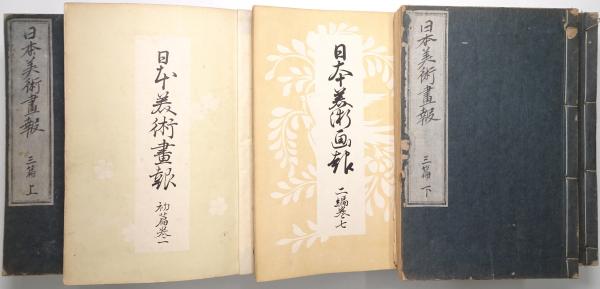 日本美術畫報
三篇 上
日本美術畫報
初篇巻一
日本美術画報
二編巻七
日本美術畫報
三篇 下